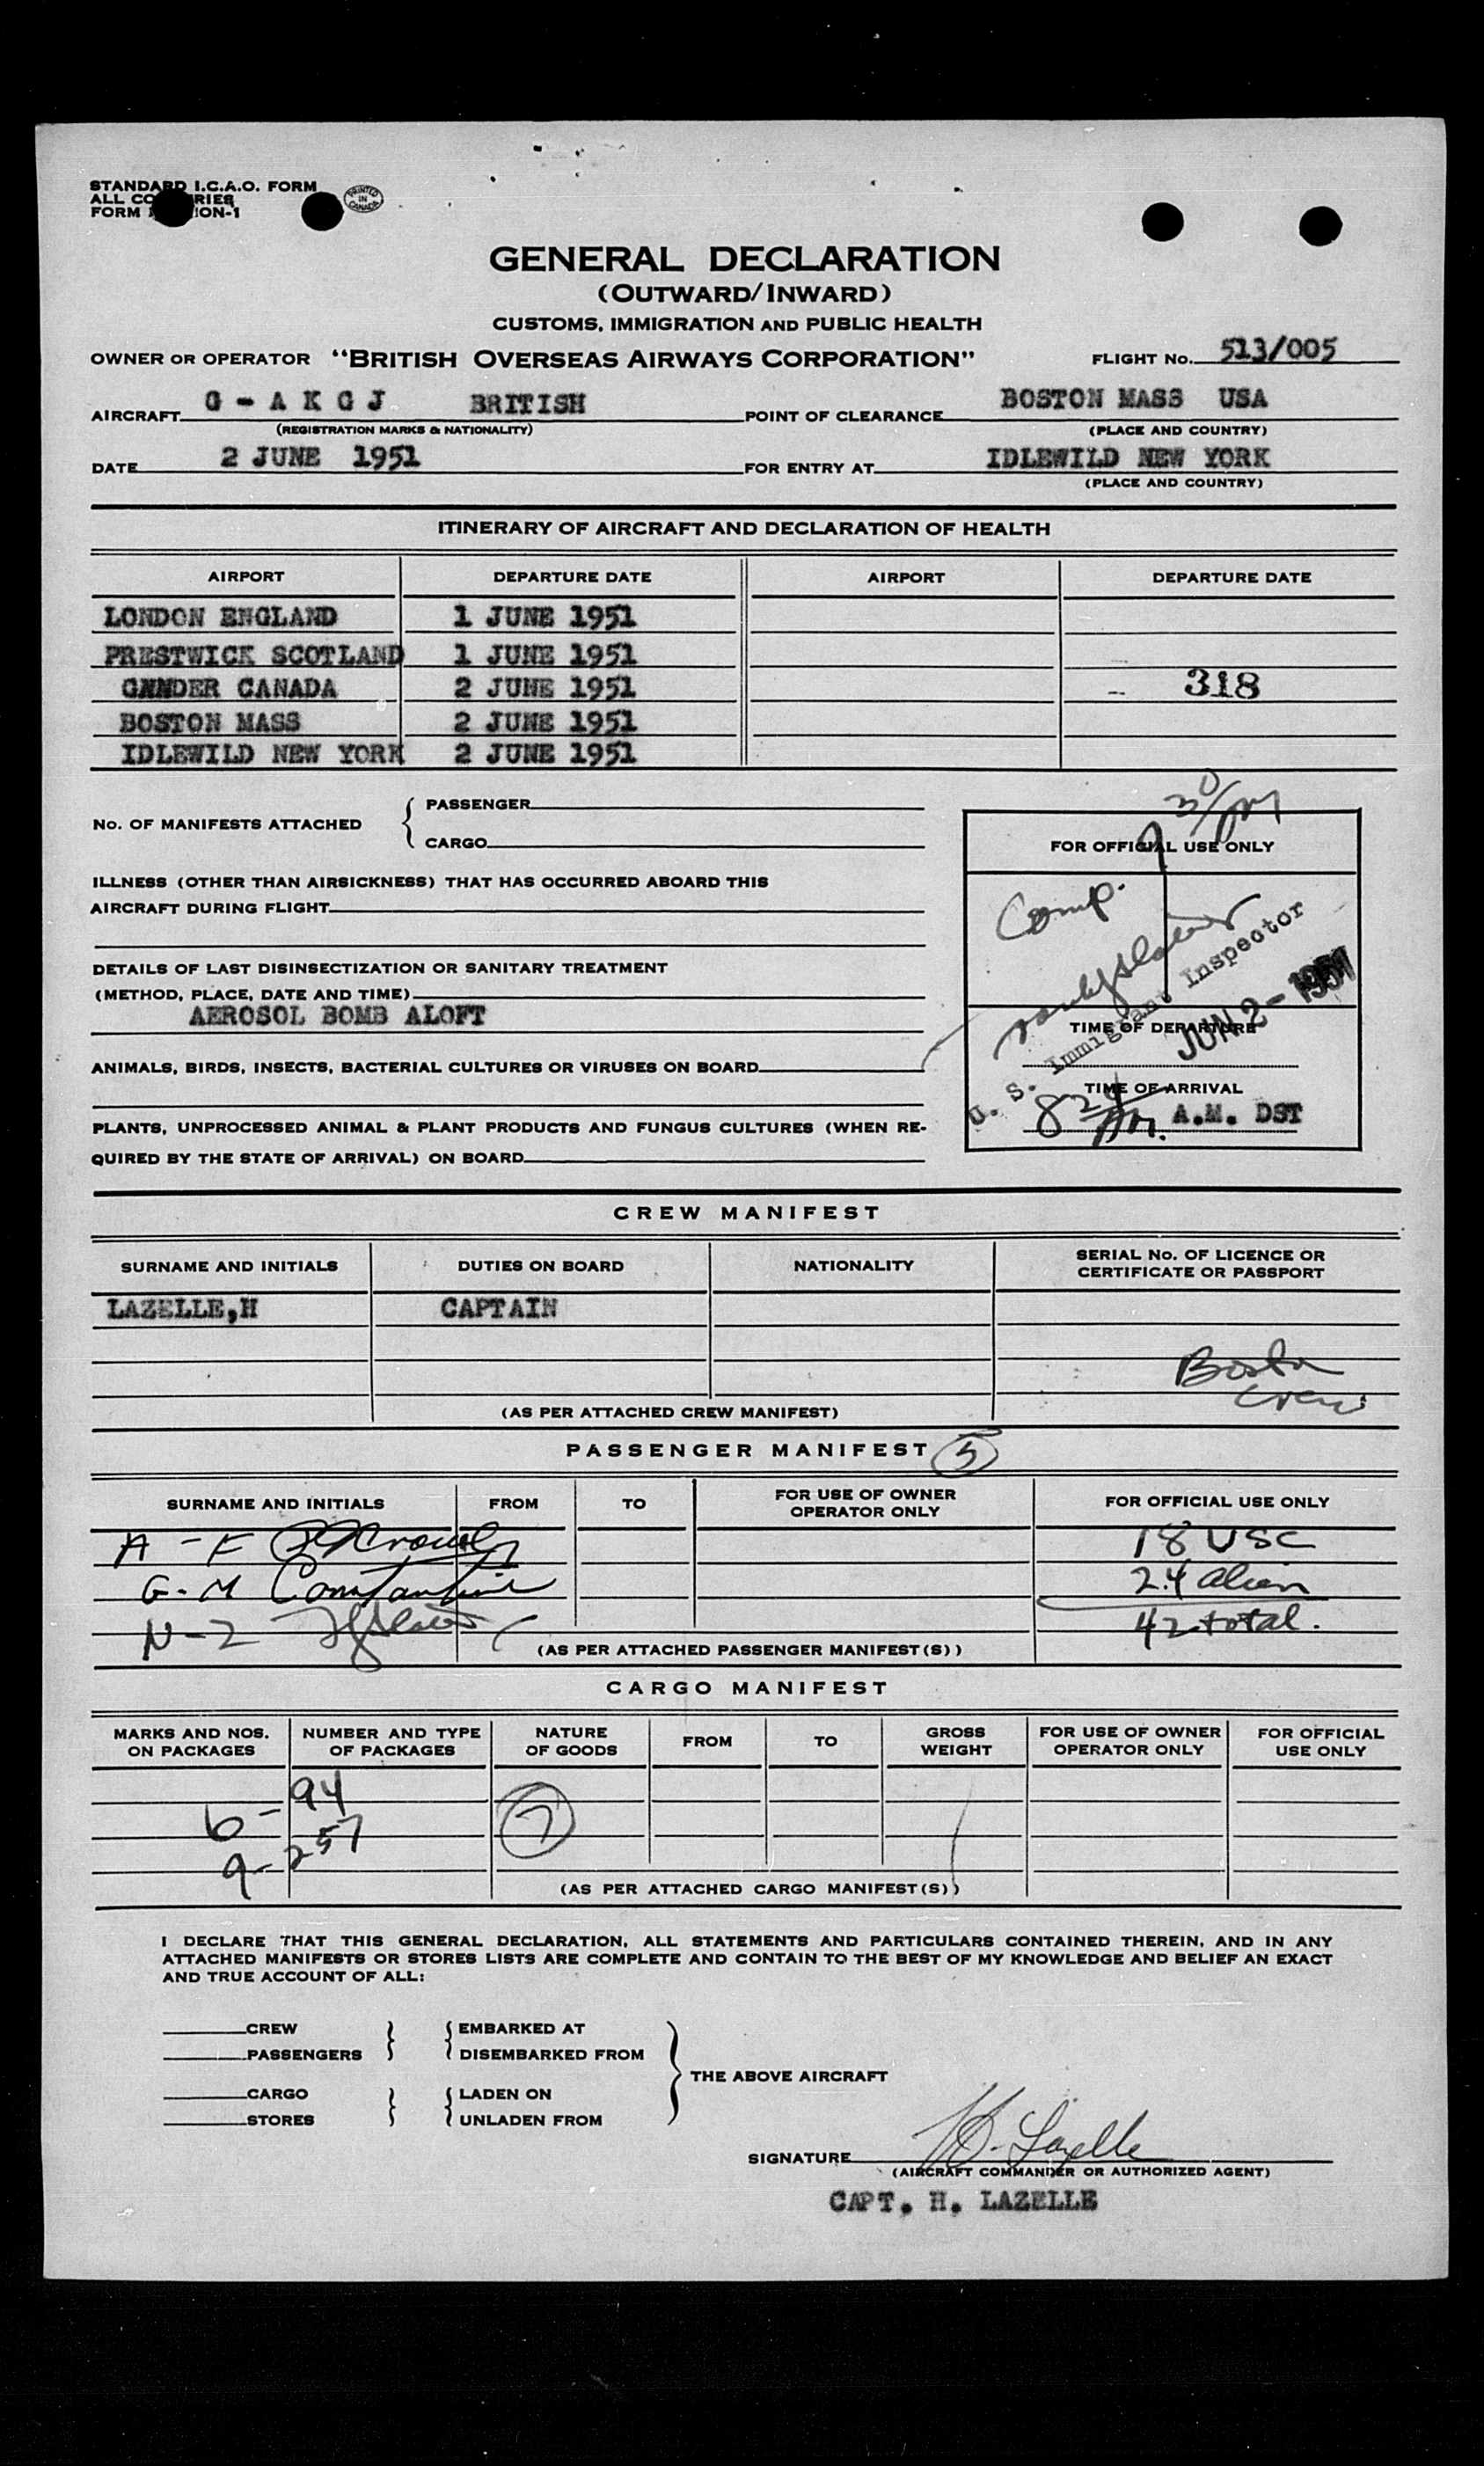 STANDARD I.C.A.O. FORM
ALL CO RIES
FORM ION-1
PRINTED IN CANADA
GENERAL DECLARATION
(OUTWARD/INWARD)
CUSTOMS, IMMIGRATION AND PUBLIC HEALTH
OWNER OR OPERATOR "BRITISH OVERSEAS AIRWAYS CORPORATION" FLIGHT No. 513/005
AIRCRAFT G - A K G J BRITISH POINT OF CLEARANCE BOSTON MASS USA
(REGISTRATION MARKS & NATIONALITY) (PLACE AND COUNTRY)
DATE 2 JUNE 1951 FOR ENTRY AT IDLEWILD NEW YORK
(PLACE AND COUNTRY)
ITINERARY OF AIRCRAFT AND DECLARATION OF HEALTH
AIRPORT DEPARTURE DATE AIRPORT DEPARTURE DATE
LONDON ENGLAND 1 JUNE 1951
PRESTWICK SCOTLAND 1 JUNE 1951
GANDER CANADA 2 JUNE 1951 - 318
BOSTON MASS 2 JUNE 1951
IDLEWILD NEW YORK 2 JUNE 1951
No. OF MANIFESTS ATTACHED { PASSENGER
CARGO
9 30/PM
FOR OFFICIAL USE ONLY
Comp.
U. S. Immigrant Inspector
JUN 2 - 1951
TIME OF DEPARTURE
TIME OF ARRIVAL
8 24 PM. A.M. DST
ILLNESS (OTHER THAN AIRSICKNESS) THAT HAS OCCURRED ABOARD THIS
AIRCRAFT DURING FLIGHT
DETAILS OF LAST DISINSECTIZATION OR SANITARY TREATMENT
(METHOD, PLACE, DATE AND TIME)
AEROSOL BOMB ALOFT
ANIMALS, BIRDS, INSECTS, BACTERIAL CULTURES OR VIRUSES ON BOARD
PLANTS, UNPROCESSED ANIMAL & PLANT PRODUCTS AND FUNGUS CULTURES (WHEN RE-
QUIRED BY THE STATE OF ARRIVAL) ON BOARD
CREW MANIFEST
SURNAME AND INITIALS DUTIES ON BOARD NATIONALITY SERIAL No. OF LICENCE OR CERTIFICATE OR PASSPORT
LAZELLE,H CAPTAIN
Boston
crew
(AS PER ATTACHED CREW MANIFEST)
PASSENGER MANIFEST 5
SURNAME AND INITIALS FROM TO FOR USE OF OWNER OPERATOR ONLY FOR OFFICIAL USE ONLY
A - F 18 USC
G - M Constantine 24 alien
N - Z 42 total.
(AS PER ATTACHED PASSENGER MANIFEST(S))
CARGO MANIFEST
MARKS AND NOS. ON PACKAGES NUMBER AND TYPE OF PACKAGES NATURE OF GOODS FROM TO GROSS WEIGHT FOR USE OF OWNER OPERATOR ONLY FOR OFFICIAL USE ONLY
6 - 94
7
9 - 257
(AS PER ATTACHED CARGO MANIFEST(S))
I DECLARE THAT THIS GENERAL DECLARATION, ALL STATEMENTS AND PARTICULARS CONTAINED THEREIN, AND IN ANY
ATTACHED MANIFESTS OR STORES LISTS ARE COMPLETE AND CONTAIN TO THE BEST OF MY KNOWLEDGE AND BELIEF AN EXACT
AND TRUE ACCOUNT OF ALL:
CREW EMBARKED AT
PASSENGERS DISEMBARKED FROM
THE ABOVE AIRCRAFT
CARGO LADEN ON
STORES UNLADEN FROM
SIGNATURE H. Lazelle
(AIRCRAFT COMMANDER OR AUTHORIZED AGENT)
CAPT. H. LAZELLE